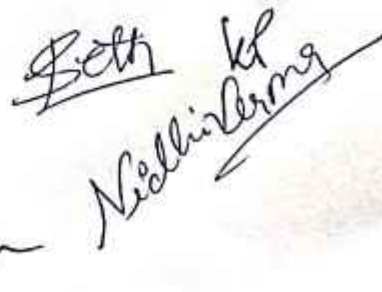 Seth
KP
Nidhi Verma